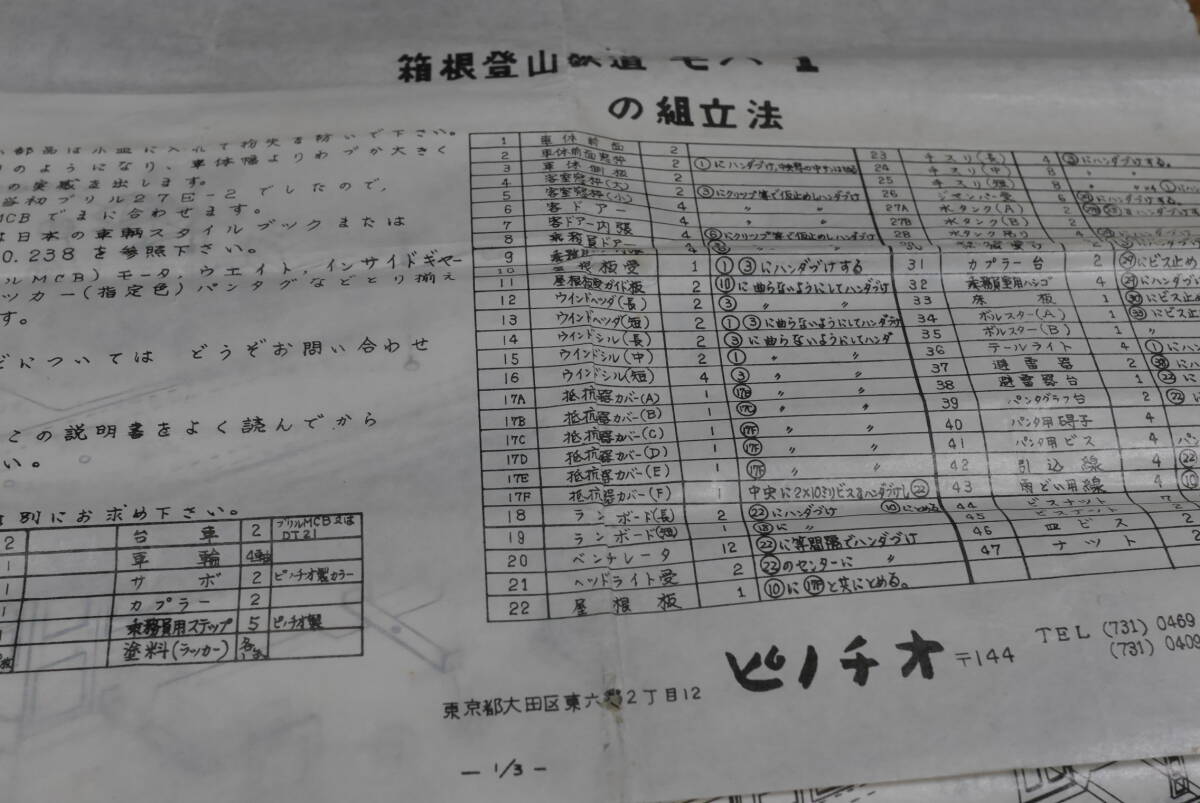 箱根登山鉄道 モハ 1
の組立法
部品は小皿に入れて紛失を防いで下さい。
のようになり、車体幅よりわづか大きく
の実感を出します。
当初ブリル27E-2 でしたので、
MCBでまに合わせます。
は日本の車輌スタイルブックまたは
0.238を参照下さい。
ルMCB)モータ、ウエイト、インサイドギヤー
ッカー(指定色)パンタグなどとり揃え
す。
どについては どうぞお問い合わせ
この説明書をよく読んでから
い。
別にお求め下さい。
2 台車 2 ブリルMCB又はDT21
1 車輪 4軸
1 サボ 2 ピノチオ製カラー
1 カプラー 2
1 乗務員用ステップ 5 ピノチオ製
塗料(ラッカー)
1 車体前面 2
2 車体前面窓枠 2
3 車体側板 2
4 客室窓枠(大) 2
5 客室窓枠(小) 2 ③にクリップ等で仮止めしハンダづけ
6 客ドアー 4 〃 〃
7 客ドアー内張 4
8 乗務員ドアー 4 ⑥にクリップ等で仮止めしハンダづけ
9
10 屋根板受 1 ① ③にハンダづけする
11 屋根板ガイド板 2 ⑩に曲らないようにしてハンダづけ
12 ウインドヘッダ(長) 2 ③ 〃 〃
13 ウインドヘッダ(短) 2 ① ③に曲らないようにしてハンダづけ
14 ウインドシル(長) 2 ③に曲らないようにしてハンダ
15 ウインドシル(中) 2 ① 〃 〃
16 ウインドシル(短) 4 ③ 〃 〃
17A 抵抗器カバー(A) 1 〃 〃
17B 抵抗器カバー(B) 1 〃 〃
17C 抵抗器カバー(C) 1 17F 〃 〃
17D 抵抗器カバー(D) 1 17F 〃 〃
17E 抵抗器カバー(E) 1 17F 〃 〃
17F 抵抗器カバー(F) 1 中央に2×10ミリビスをハンダづけし㉒
18 ランボード(長) 2 ㉒にハンダづけ ⑩にとめる
19 ランボード(短) 1 ⑱に 〃
20 ベンチレータ 12 ㉒に等間隔でハンダづけ
21 ヘッドライト受 2 ㉒のセンターに 〃
22 屋根板 1 ⑩に17Fと共にとめる。
23 手スリ(長) 4 にハンダづけする。
24 手スリ(中) 8
25 手スリ(短) 8
26 ジャンパー受 6
27A 水タンク(A) 2
27B 水タンク(B) 2
28 水タンク吊り 4
31 カプラー台 2 ㉙にビス止め
32 乗務員室用ハシゴ 4 ㉙にハンダづけ
33 床板 1 ㉚にビス止
34 ボルスター(A) 1 ㉝にビス止
35 ボルスター(B) 1 〃
36 テールライト 4 ①にハン
37 避雷器 2 ㊳にハ
38 避雷器台 1 ㉒に
39 パンタグラフ台 2 ㉒に
40 パンタ用碍子 4
41 パンタ用ビス 4
42 引込線 4 ㉒
43 雨どい用線 4 ⑩
44 ビスナット
45
46 皿ビス 2
47 ナット 2
ピノチオ 〒144 TEL (731) 0469
(731) 0409
東京都大田区東六郷2丁目12
- 1/3 -